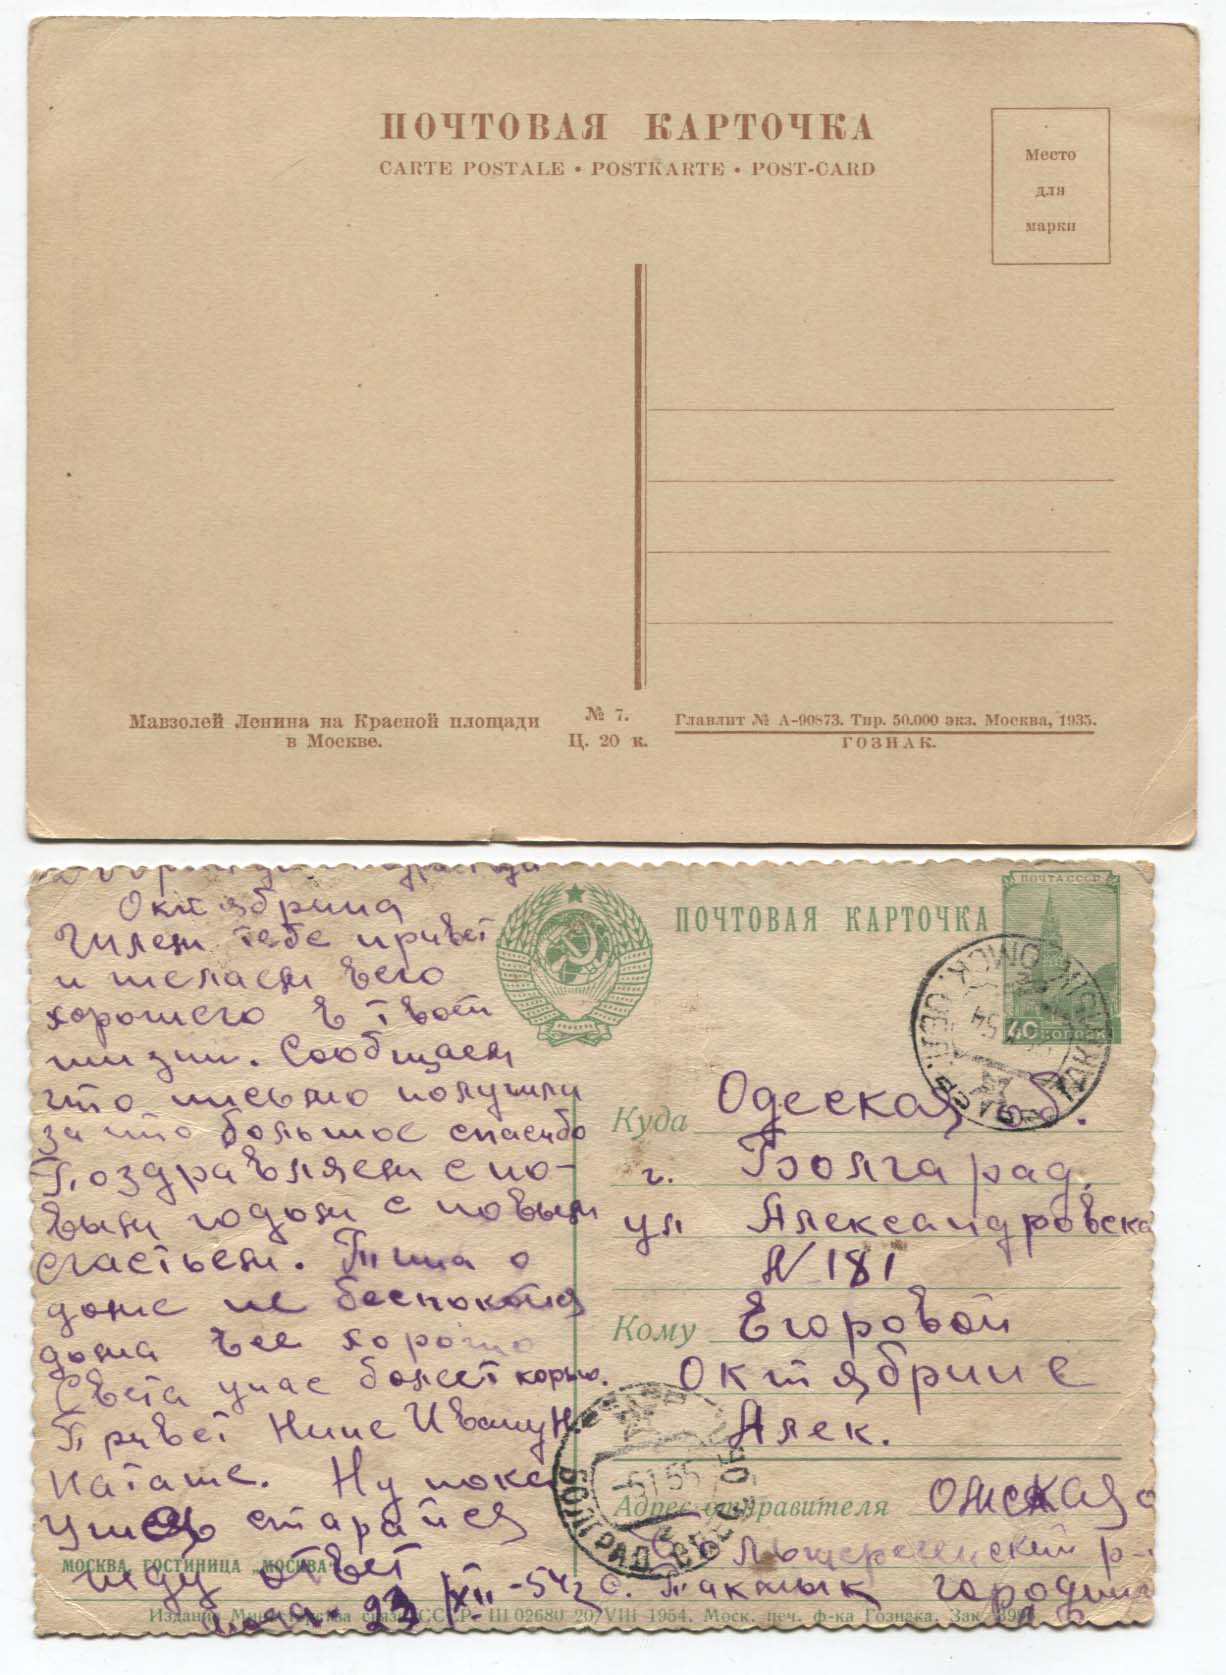 ПОЧТОВАЯ КАРТОЧКА
CARTE POSTALE • POSTKARTE • POST-CARD
Место
для
марки
Мавзолей Ленина на Красной площади
в Москве.
№ 7.
Ц. 20 к.
Главлит № А-90873. Тир. 50.000 экз. Москва, 1935.
ГОЗНАК.
Октябрина
Шлем тебе привет
и желаем всего
хорошего в твоей
жизни. Сообщаем
что письмо получили
за что большое спасибо
Поздравляем с но-
вым годом с новым
счастьем. Тина о
доме не беспокойся
дома все хорошо
Света у нас болеет корью.
Привет Нине Ивану Н.
Наташе. Ну пока
Учись старайся
жду ответ
23/XII-54г
МОСКВА, ГОСТИНИЦА „МОСКВА“
Издание Министерства связи СССР. Ш 02680 20/VIII 1954. Моск. печ. ф-ка Гознака. Зак.
ПОЧТОВАЯ КАРТОЧКА
ПОЧТА СССР
40 КОПЕЕК
ОМСК
54
Куда Одесская об.
г. Болгарад.
ул Александровска
N 181
Кому Егоровой
Октябрине
Алек.
БОЛГРАД
55
Адрес отправителя Омская о
р-
с.